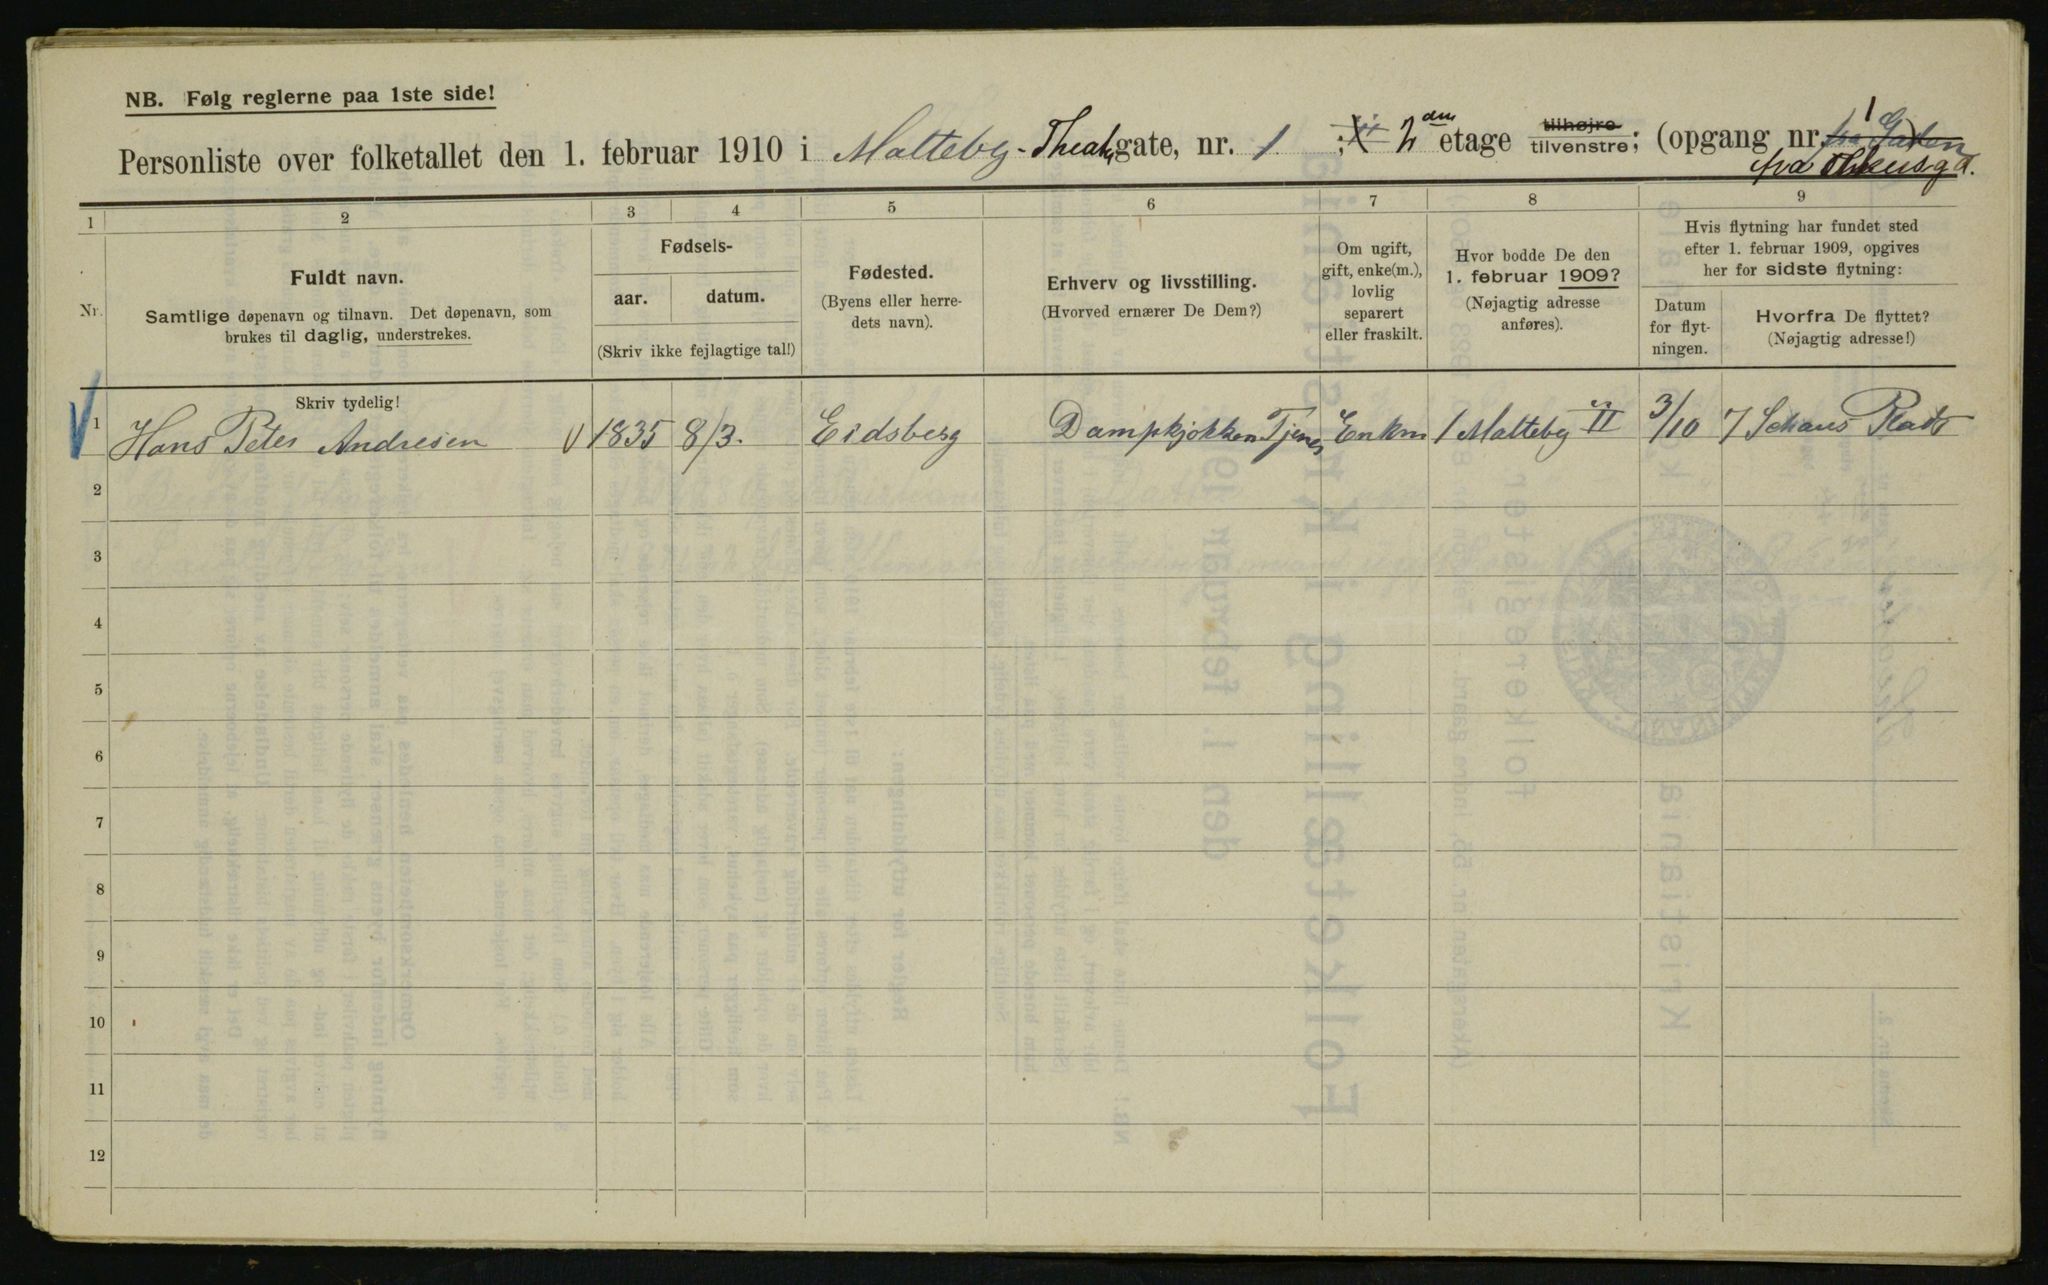 NB. Følg reglerne paa 1ste side!
Personliste over folketallet den 1. februar 1910 i Malteby- gate, nr. 1 ; 2den etage tilhøjre tilvenstre; (opgang nr. 1
fra
1 2 3 4 5 6 7 8 9
Nr.
Fuldt navn.
Samtlige døpenavn og tilnavn. Det døpenavn, som
brukes til daglig, understrekes.
Skriv tydelig!
Fødsels-
aar. datum.
(Skriv ikke fejlagtige tal!)
Fødested.
(Byens eller herre-
dets navn).
Erhverv og livsstilling.
(Hvorved ernærer De Dem?)
Om ugift,
gift, enke(m.),
lovlig
separert
eller fraskilt.
Hvor bodde De den
1. februar 1909?
(Nøjagtig adresse
anføres).
Hvis flytning har fundet sted
efter 1. februar 1909, opgives
her for sidste flytning:
Datum
for flyt-
ningen.
Hvorfra De flyttet?
(Nøjagtig adresse!)
1 Hans Peter Andresen 1835 8/3. Eidsberg Dampkjøkken Tjener Enkm 1 Malteby II 3/10 7 Schous Plads
2
3
4
5
6
7
8
9
10
11
12